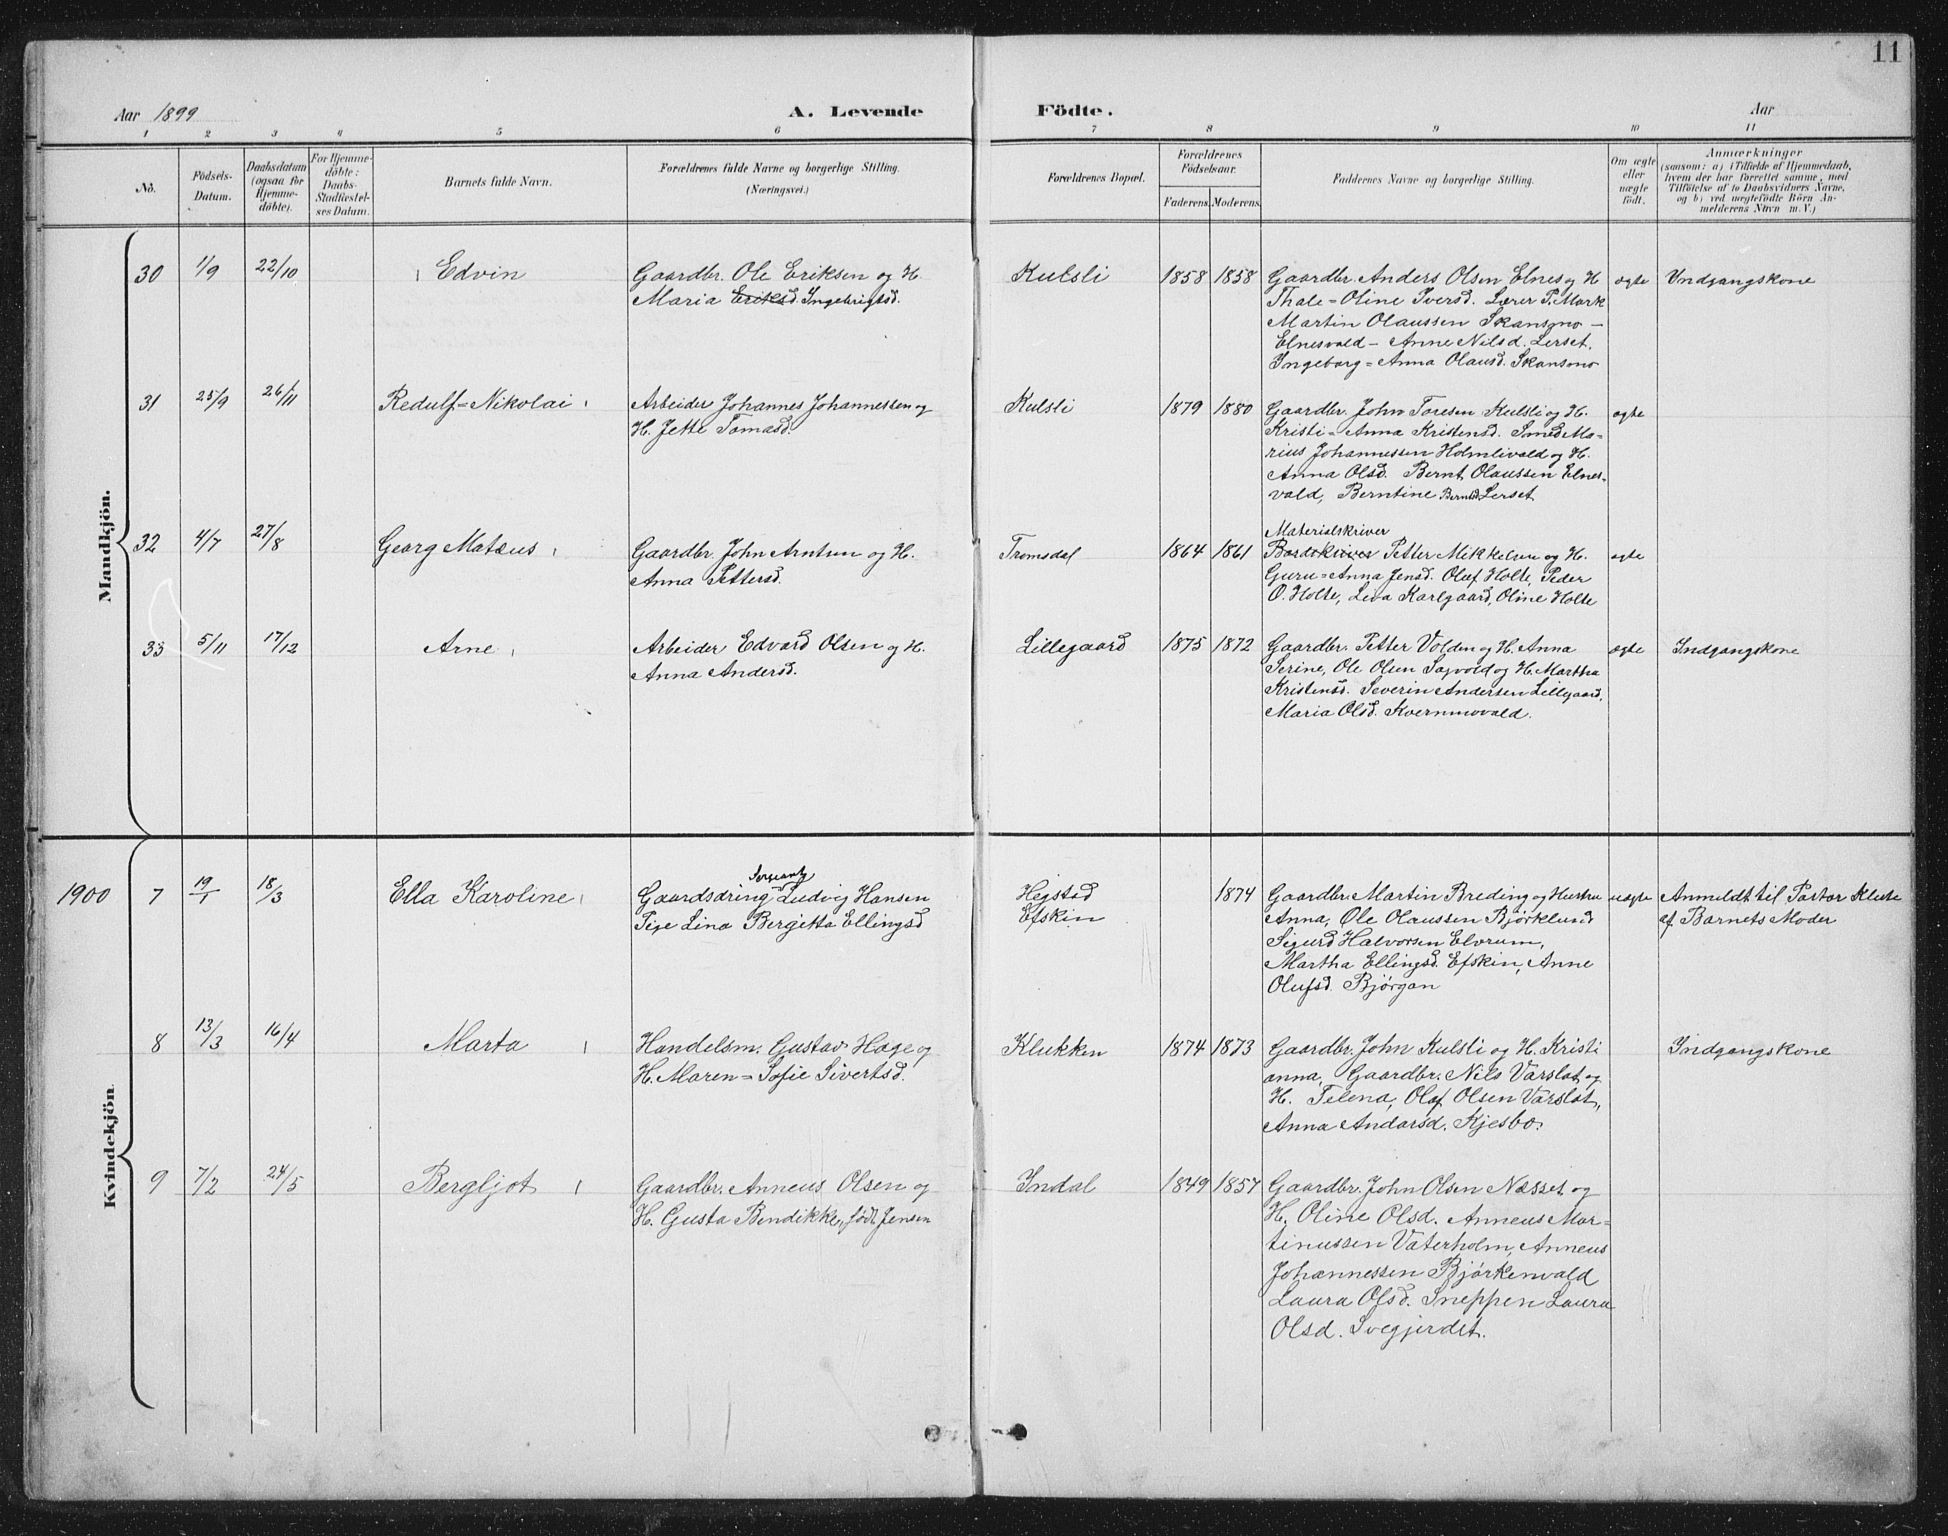 11
Aar 1899
A. Levende
Födte.
Aar
1 2 3 4 5 6 7 8 9 10 11
No.
Födsels-Datum.
Daabsdatum (ogsaa for Hjemme-döbte).
For Hjemme-döbte: Daabs-Stadfæstel-ses Datum.
Barnets fulde Navn.
Forældrenes fulde Navne og borgerlige Stilling.
(Næringsvei.)
Forældrenes Bopæl.
Forældrenes Födselsaar.
Faderens. Moderens.
Faddernes Navne og borgerlige Stilling.
Om ægte eller uægte födt.
Anmærkninger
(saasom: a) i Tilfælde af Hjemmedaab,
hvem der har forrettet samme, med
Tilföielse af to Daabsvidners Navne,
og b) ved uægtefödte Börn An-
melderens Navn m. V.)
Mandkjön.
30 1/9 22/10 Edvin
Gaardbr. Ole Eriksen og H.
Maria Eriksd. Ingebrigtsd.
Kulsli 1858 1858
Gaardbr. Anders Olsen Elnes og H
Thale=Oline Iversd. Lærer P. Mark
Martin Olaussen Skansmo-
Elnesvald- Anne Nilsd. Lerset.
Ingeborg=Anna Olausd. Skansmo
ægte Indgangskone
31 25/9 26/11 Redulf=Nikolai
Arbeider Johannes Johannessen og
H. Jette Tomasd.
Kulsli 1879 1880
Gaardbr. John Toresen Kulsli og H.
Kristi=Anna Kristensd. Smed Ma=
rius Johannessen Holmlivald og H.
Anna Olsd. Bernt Olaussen Elnes-
vald, Berntine Berntsd. Lerset
ægte
32 4/7 27/8 Georg Matæus
Gaardbr. John Arntsen og H.
Anna Pettersd.
Tromsdal 1864 1861
Materialskriver
Bordskriver Petter Mikkelsen og H.
Guru=Anna Jensd. Olaf Holte, Peder
O. Holte, Liva Karlgaard, Oline Holte
ægte
33 5/11 17/12 Arne
Arbeider Edvard Olsen og H.
Anna Andersd.
Lillegaard 1875 1872
Gaardbr. Petter Volden og H. Anna
Serine, Ole Olsen Sagvold og H. Martha
Kristensd. Severin Andersen Lillegaard,
Maria Olsd. Kvernmovald.
ægte Indgangskone
Kvindekjön
1900 7 19/1 18/3 Ella Karoline
Sergeant
Gaardsdring Ludvig Hansen
Pige Lina Bergitta Ellingsd
Hegstad
Efskin
1874
Gaardbr. Martin Breding og Hustru
Anna, Ole Olaussen Bjørklund
Sigurd Halvorsen Elvrum,
Martha Ellingsd. Efskin, Anne
Olufsd. Bjørgan
uægte Anmeldt til Pastor
af Barnets Moder
8 13/3 16/4 Marta
Handelsm. Gustav Hage og
H. Maren=Sofie Sivertsd.
Klukken 1874 1873
Gaardbr. John Kulsli og H. Kristi
anna, Gaardbr. Nils Varslot og
H. Telena, Olaf Olsen Varslot,
Anna Andarsd. Kjesbo.
Indgangskone
9 7/2 24/5 Bergljot
Gaardbr. Anneus Olsen og
H. Gusta Bendikke, født Jensen
Indal 1849 1857
Gaardbr. John Olsen Næsset og
H. Oline Olsd. Anneus Mar=
tinussen Vaterholm, Anneus
Johannessen Bjørkenvald
Laura Olsd. Sneppen Laura
Olsd. Svegjerdet.